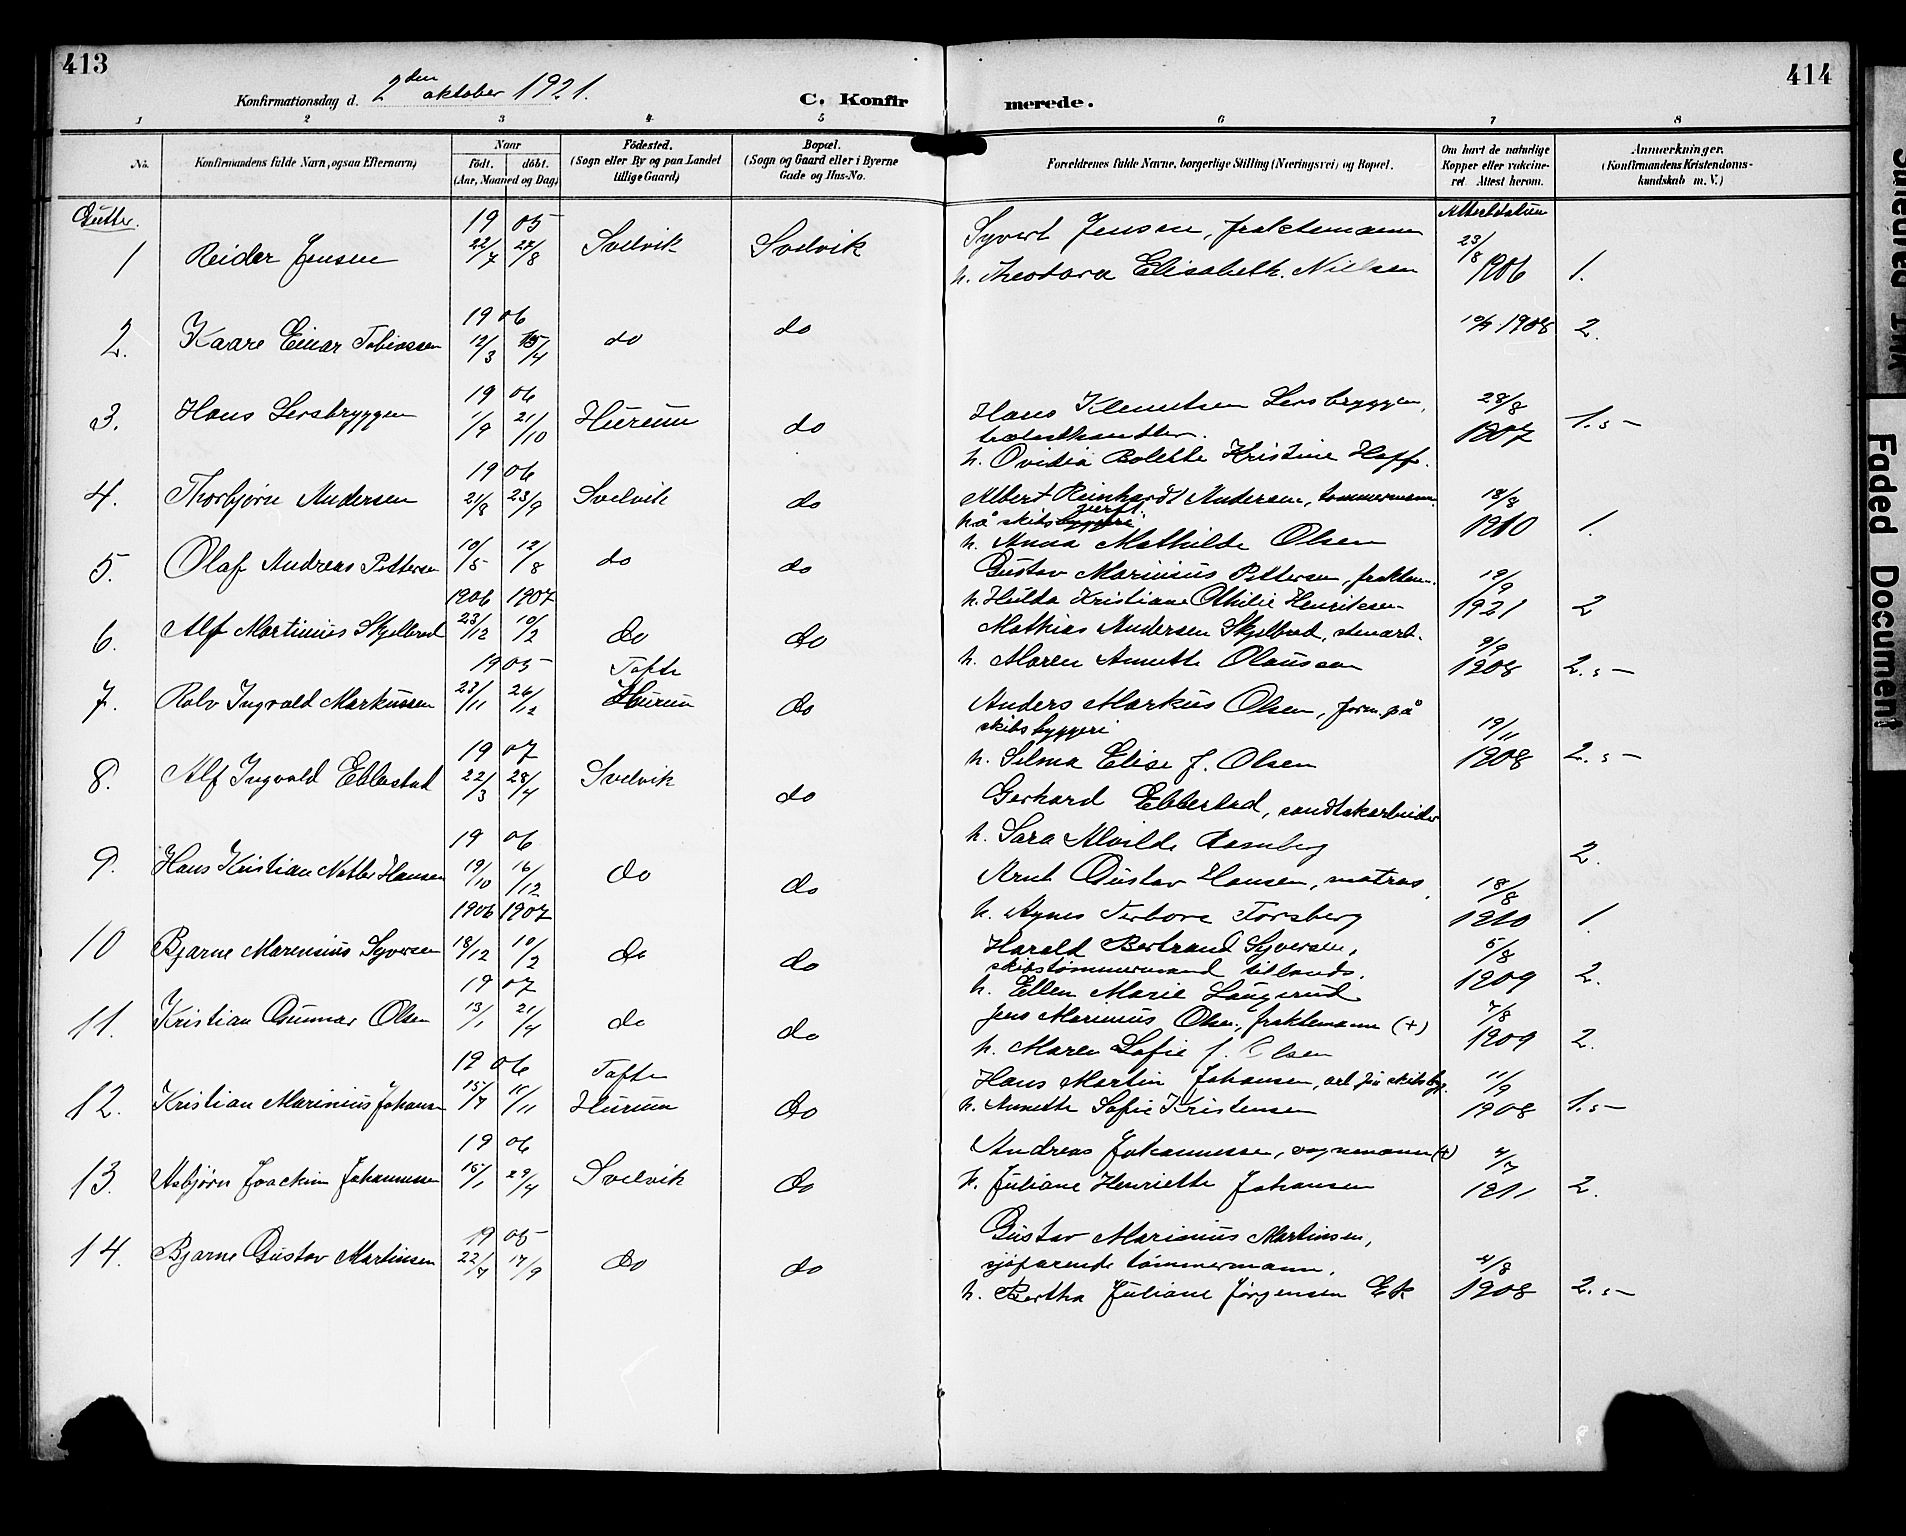 413
414
Konfirmationsdag d. 2den oktober 1921.
C. Konfirmerede.
1 2 3 4 5 6 7 8
No.
Konfirmandens fulde Navn, ogsaa Efternavn)
Naar
födt. döbt.
(Aar, Maaned og Dag)
Födested.
(Sogn eller By og paa Landet
tillige Gaard)
Bopæl.
(Sogn og Gaard eller i Byerne
Gade og Hus-No.
Forældrenes fulde Navne, borgerlige Stilling (Næringsvei) og Bopæl.
Om havt de naturlige
Kopper eller vakcine-
ret. Attest herom.
Anmærkninger.
(Konfirmandens Kristendoms-
kundskab m. V.)
Gutter.
Attestdatum
1 Reidar Jensen 1905 22/7 27/8 Svelvik Svelvik
Syvert Jensen, fraktemann
h. Theodora Elisabeth Nielsen 23/8 1906 1.
2. Kaare Einar Tobiassen 1906 12/3 15/4 do do 1908 2.
3. Hans Sersbryggen 1906 1/9 21/10 Hurum do
Hans Klemetsen Sersbryggen,
h. Ovidia Bolette Kristine Hoff. 28/8 1907 1.5-
4. Thorbjørn Andersen 1906 21/8 23/9 Svelvik do
Albert Reinhardt Andersen, tømmermann
på skibsverft.
h. Anna Mathilde Olsen 18/8 1910 1.
5. Olaf Andreas Pettersen 10/5 12/8 do do
Gustav Marinius Pettersen, fraktem.
h. Hulda Kristiane Othilie Henriksen 19/9 1921 2
6. Alf Martinius Skjelbred 1906 23/12 1907 10/2 do do
Mathias Andersen Skjelbred, stenarb.
h. Maren Annette Olaussen 9/9 1908 2.5-
7. Rolv Ingvald Markussen 1905 23/11 26/12 Tofte Hurum do
Anders Markus Olsen, form. på
skibsbyggeri
h. Selma Elise f. Olsen 19/11 1908 2.5-
8. Alf Ingvald Ebbestad 1907 22/3 28/4 Svelvik do
Gerhard Ebbestad, sandtakarbeider
h. Sara Alvilde Rosnberg 2.
9. Hans Kristian Hansen 1906 19/10 16/12 do do
Arnt Gustav Hansen, matros,
h. Agnes Terbora Torsberg 18/8 1910 1.
10 Bjarne Marenius Syversen 1906 18/12 1907 10/2 do do
Harald Bertrand Syversen,
skibstømmermand tillands.
h. Ellen Marie Laugerud 5/8 1909 2.
11. Kristian Gunnar Olsen 1907 13/1 21/4 do do
Jens Marinius Olsen, fraktemann (+)
h. Maren Sofie f. Olsen 7/8 1909 2.
12. Kristian Marinius Johansen 1906 15/7 11/11 Tofte Hurum do
Hans Martin Johansen, arb. på skibsbyg.
h. Annette Sofie Kristensen 11/9 1908 1.5-
13. Asbjørn Joachim Johannessen 1906 15/1 29/4 Svelvik do
Andreas Johannessen, vognmann (+)
h. Juliane Henriette Johansen 4/7 1911 2.
14. Bjarne Gustav Martinsen 1905 22/7 17/9 do do
Gustav Marinius Martinsen,
sjøfarende tømmermann,
h. Bertha Juliane Jørgensen Ek 4/8 1908 2.5-
Faded Document